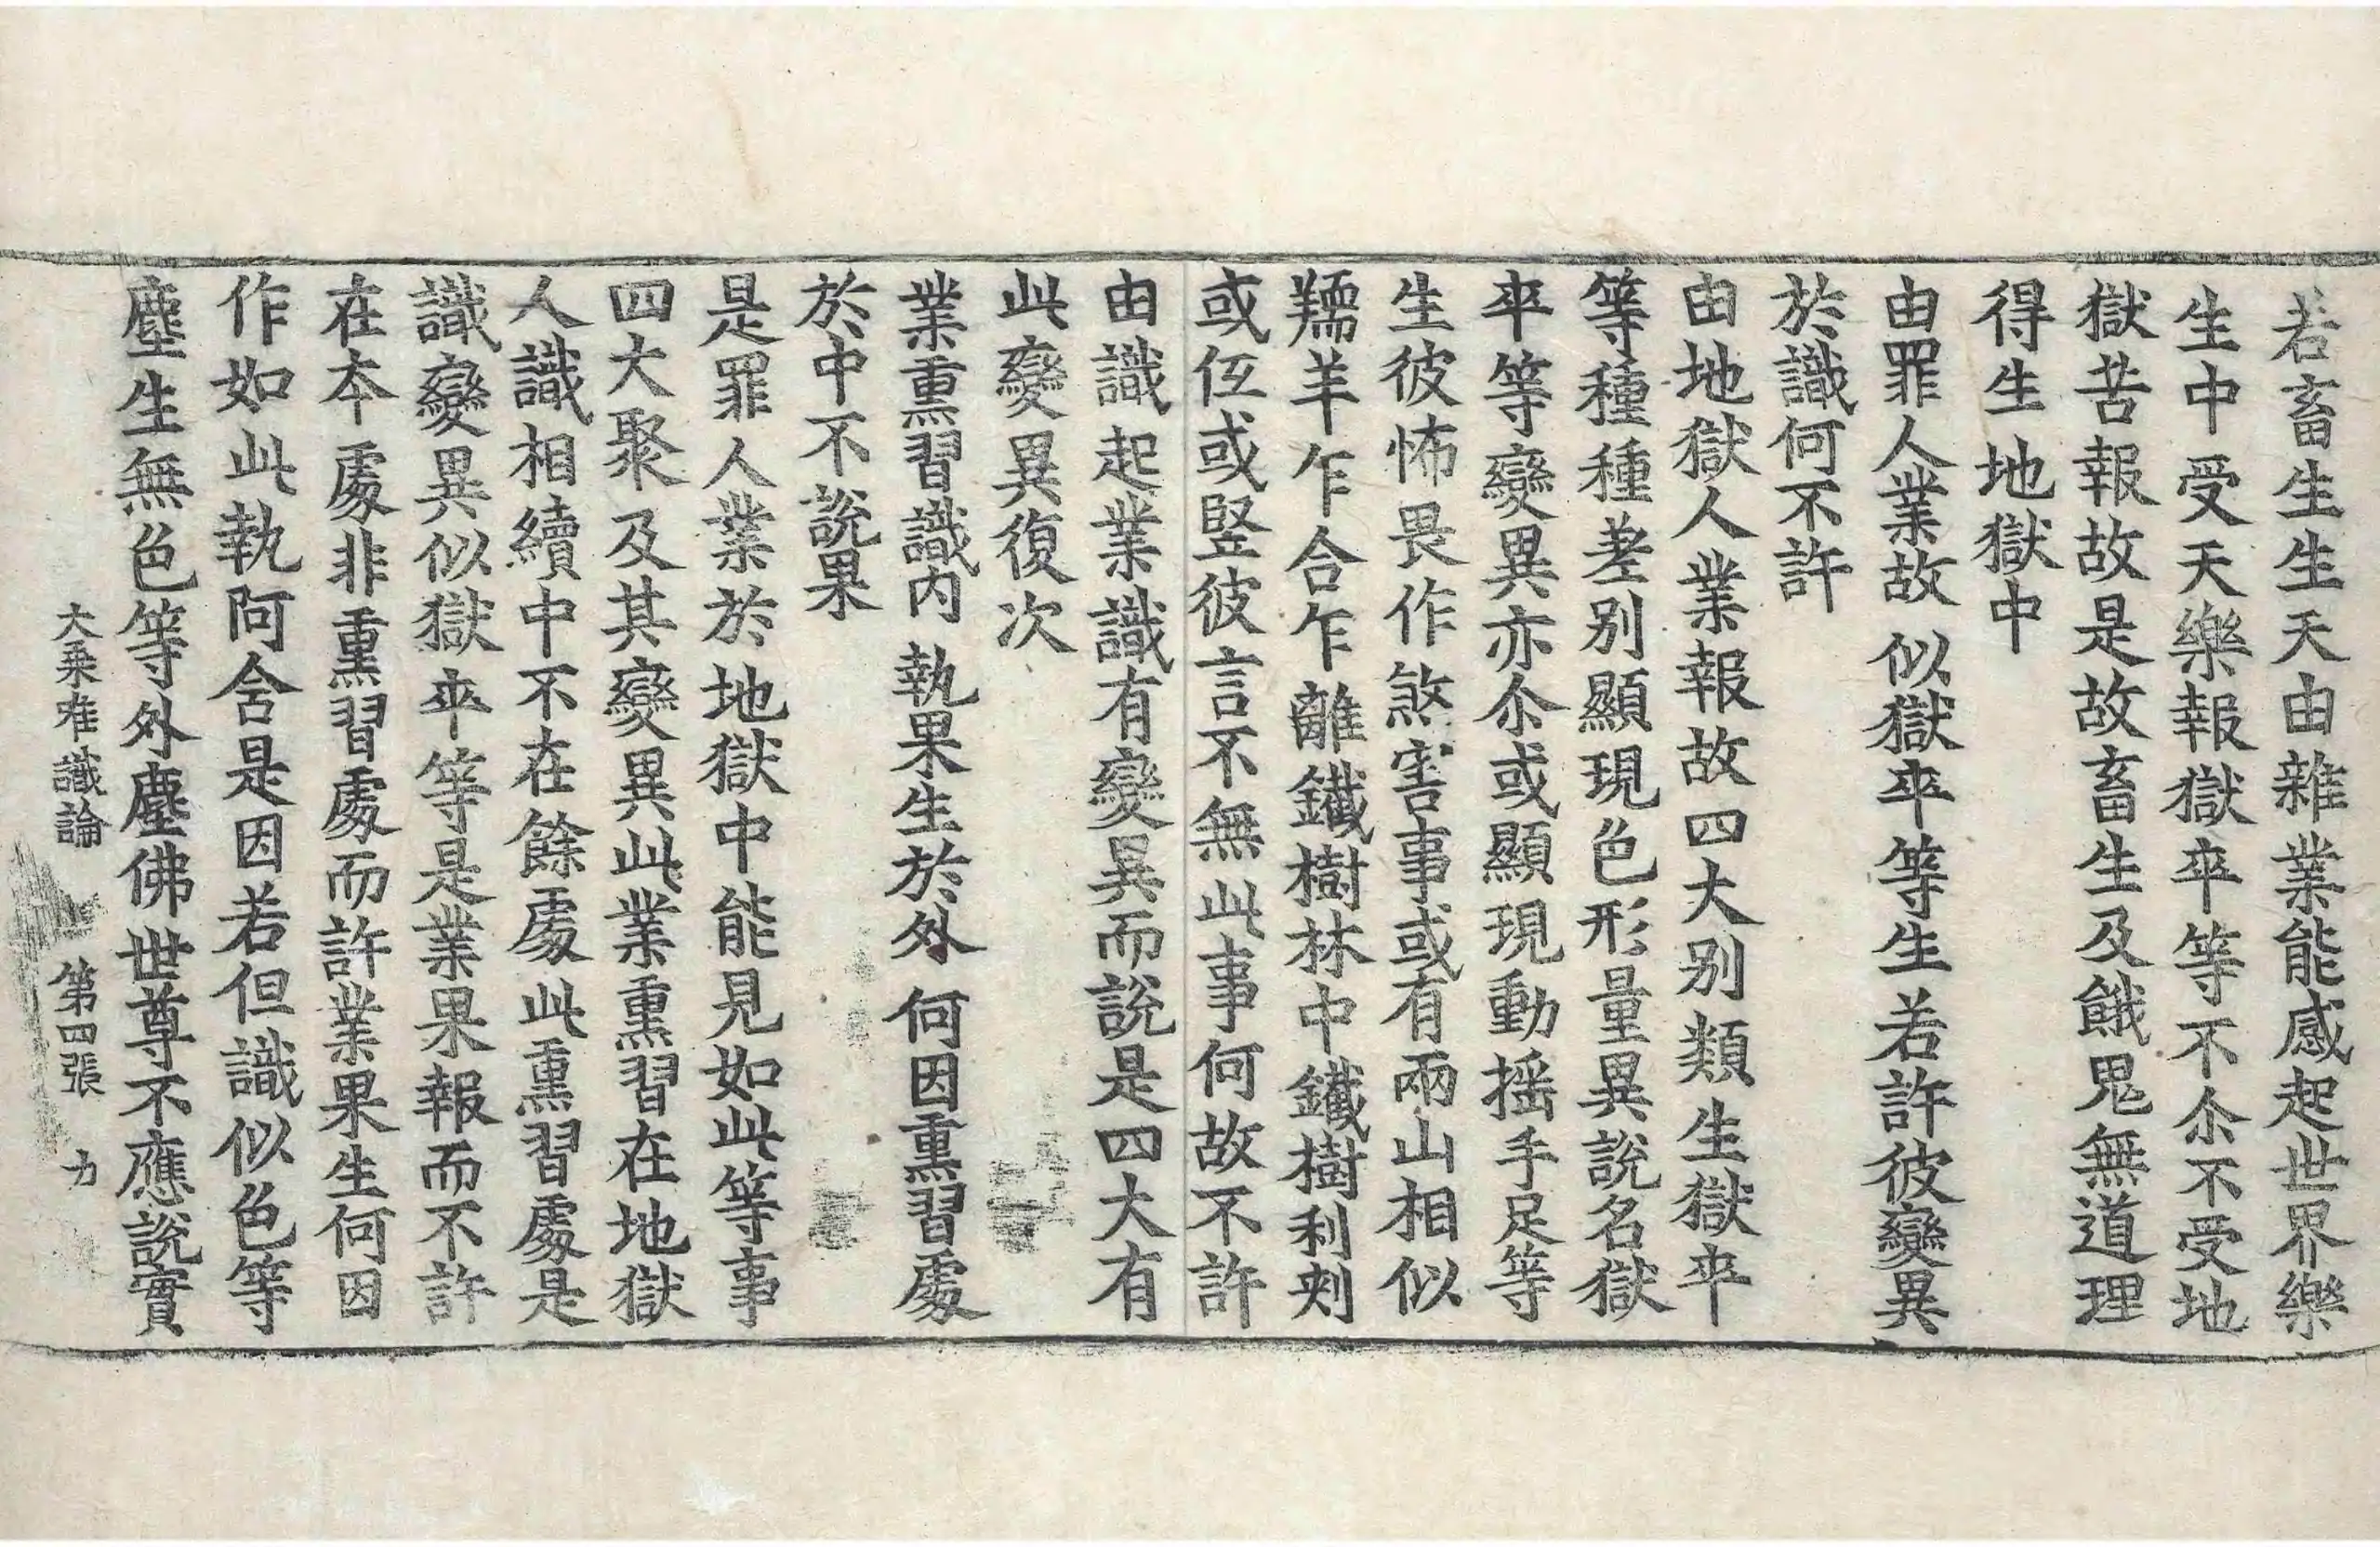 若畜生生天由雜業能感起世界樂
生中受天樂報獄卒等不尒不受地
獄苦報故是故畜生及餓鬼無道理
得生地獄中
由罪人業故 似獄卒等生 若許彼變異
於識何不許
由地獄人業報故四大別類生獄卒
等種種差別顯現色形量異說名獄
卒等變異亦尒或顯現動搖手足等
生彼怖畏作煞害事或有兩山相似
羺羊乍合乍離鐵樹林中鐵樹利刾
或低或竪彼言不無此事何故不許
由識起業識有變異而說是四大有
此變異復次
業熏習識內 執果生於外 何因熏習處
於中不說果
是罪人業於地獄中能見如此等事
四大聚及其變異此業熏習在地獄
人識相續中不在餘處此熏習處是
識變異似獄卒等是業果報而不許
在本處非熏習處而許業果生何因
作如此執阿含是因若但識似色等
塵生無色等外塵佛世尊不應說實
大乘唯識論 第四張 力